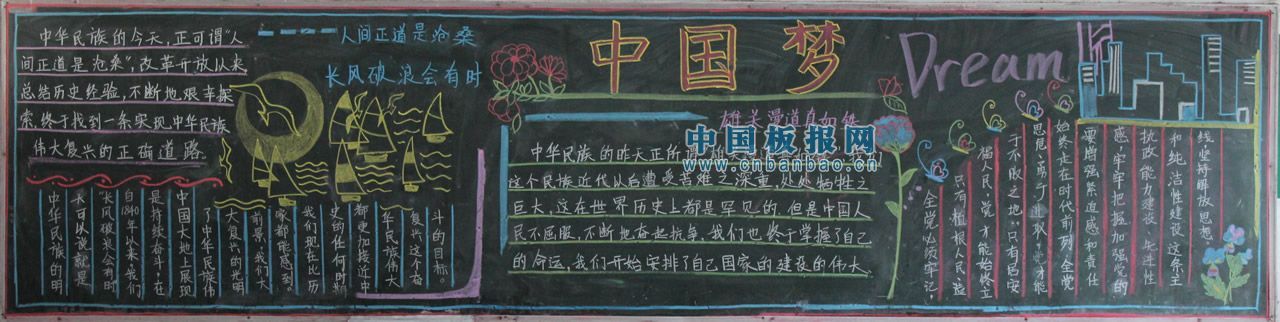 中华民族的今天,正可谓"人
间正道是沧桑",改革开放以来
总结历史经验,不断地艰辛探
索终于找到一条实现中华民族
伟大复兴的正确道路。
人间正道是沧桑
长风破浪会有时
中华民族的明
天可以说就是
"长风破浪会有时
自1840年以来我们
是持续奋斗,在
中国大地上展现
了中华民族伟
大复兴的光明
前景,我们大
家都能感到。
我们现在比历
史的任何时期
都更加接近中
华民族伟大
复兴这个奋
斗的目标。
中国梦
Dream
雄关漫道真如铁
中国板报网
www.cnbanbao.cn
中华民族的昨天正所
这个民族近代以后遭受苦难之深重,处处牺牲之
巨大,这在世界历史上都是罕见的,但是中国人
民不屈服,不断地奋起抗争,我们也终于掌握了自己
的命运,我们开始安排了自己国家的建设的伟大。
线,坚持解放思想
和纯洁性建设这条主
执政能力建设、先进性
感,牢牢把握加强党的
要增强紧迫感和责任
始终走在时代前列,全党
思危,勇于进取,党才能
于不败之地。只有居安
植人民,党才能始终立
只有植根人民、造
全党必须牢记,